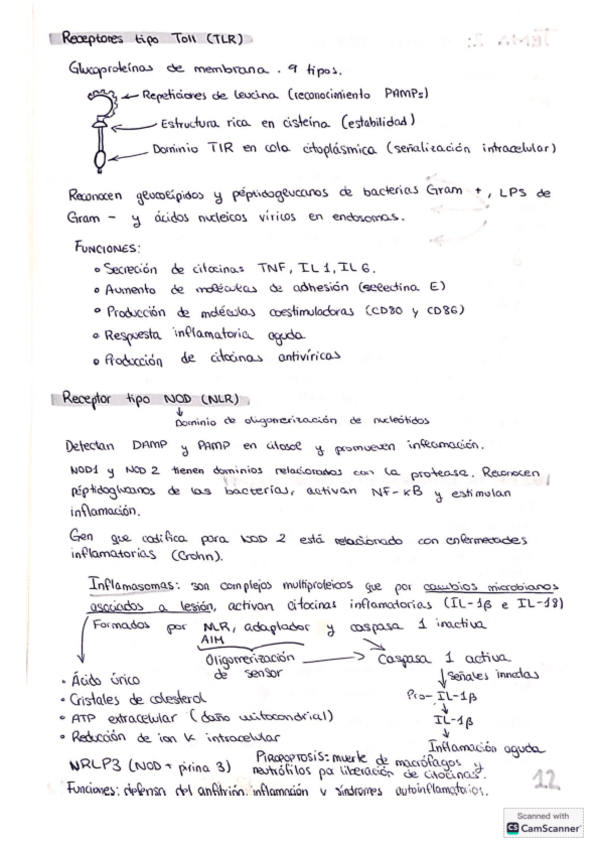 Receptores tipo Toll (TLR)
Glucoproteínas de membrana. 9 tipos.
Repeticiones de leucina (reconocimiento PAMPs)
Estructura rica en cisteína (estabilidad)
Dominio TIR en cola citoplásmica (señalización intracelular)
Reconocen glucolípidos y péptidoglucanos de bacterias Gram +, LPS de
Gram - y ácidos nucleicos víricos en endosomas.
FUNCIONES:
• Secreción de citocinas TNF, IL 1, IL 6.
• Aumento de moléculas de adhesión (selectina E)
• Producción de moléculas coestimuladoras (CD80 y CD86)
• Respuesta inflamatoria aguda
• Producción de citocinas antivíricas
Receptor tipo NOD (NLR)
↓
Dominio de oligomerización de nucleótidos
Detectan DAMP y PAMP en citosol y promueven inflamación.
NOD1 y NOD 2 tienen dominios relacionados con la proteasa. Reconocen
péptidoglucanos de las bacterias, activan NF-κB y estimulan
inflamación.
Gen que codifica para NOD 2 está relacionado con enfermedades
inflamatorias (Crohn).
Inflamasomas: son complejos multiproteicos que por cambios microbianos
asociados a lesión, activan citocinas inflamatorias (IL-1β e IL-18)
Formados por NLR, adaptador y caspasa 1 inactiva
AIM
Oligomerización → Caspasa 1 activa
de sensor
↓ Señales innatas
• Ácido úrico
Pro-IL-1β
• Cristales de colesterol
↓
• ATP extracelular (daño mitocondrial)
IL-1β
• Reducción de ion K intracelular
↓
Inflamación aguda
NRLP3 (NOD + pirina 3)
Piropoptosis: muerte de macrófagos y
neutrófilos por liberación de citocinas.
Funciones: defensa del anfitrión, inflamación y síndromes autoinflamatorios.
12
Scanned with
CS CamScanner